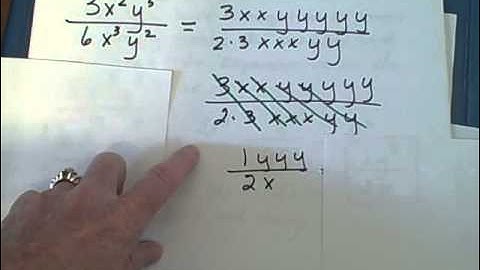 3x²y⁵ / 6x³y² = 3xxyyyyy / 2·3xxxyy
3xxyyyyy / 2·3xxxyy
1yyy / 2x